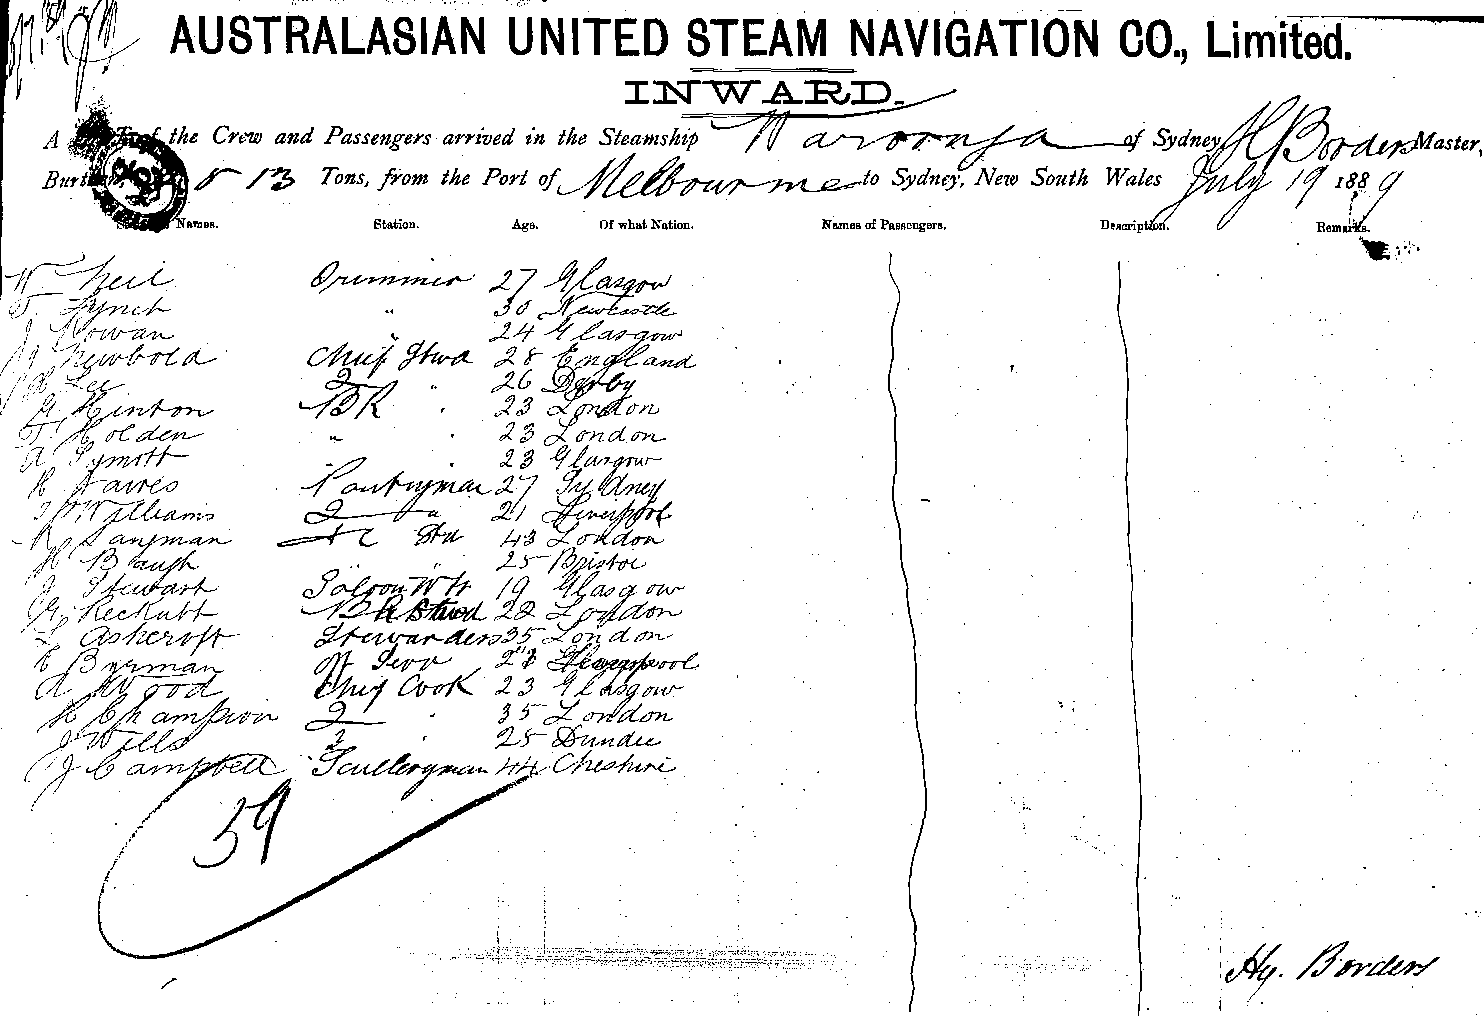 AUSTRALASIAN UNITED STEAM NAVIGATION CO., Limited.
INWARD.
A of the Crew and Passengers arrived in the Steamship Waroonga of Sydney H Borders Master,
13 Tons, from the Port of Melbourne to Sydney, New South Wales July 19 1889
Names. Station. Age. Of what Nation. Names of Passengers. Description. Remarks.
W Neil Trimmer 27 Glasgow
T. Lynch " 30 Newcastle
J Rowan " 24 Glasgow
Newbold Chief Stwd 28 England
Lee 2 " 26 Derby
G Hinton BR " 23 London
T. Holden " " 23 London
A Symott " 23 Glasgow
H Jarres Pantryman 27 Sydney
Williams 2 " 21 Liverpool
Langman Std 43 London
H Baugh 25 Bristol
J Stewart Saloon Wtr 19 Glasgow
G Reckubt BR Stwd 22 London
L Ashcroft Stewardess 35 London
E Burman 23 Liverpool
A Wood Chief Cook 23 Glasgow
H Champion 2 " 35 London
J Wills 3 " 25 Dundee
J Campbell Sculleryman 44 Cheshire
59
Hy. Borders